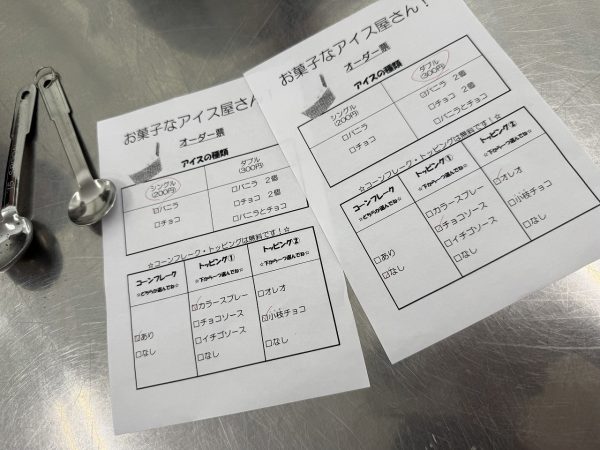 お菓子なアイス屋さん！
オーダー票
アイスの種類
シングル
(200円)
ダブル
(300円)
☑バニラ
□チョコ
□バニラ 2個
□チョコ 2個
□バニラとチョコ
☆コーンフレーク・トッピングは無料です！☆
コーンフレーク
☆どちらか選んでね☆
トッピング①
☆下から一つ選んでね☆
トッピング②
☆下から一つ選んでね☆
☑あり
□なし
☑カラースプレー
□チョコソース
□イチゴソース
□なし
□オレオ
☑小枝チョコ
□なし
お菓子なアイス屋さん！
オーダー票
アイスの種類
シングル
(200円)
ダブル
(300円)
□バニラ
□チョコ
☑バニラ 2個
□チョコ 2個
□バニラとチョコ
☆コーンフレーク・トッピングは無料です！☆
コーンフレーク
☆どちらか選んでね☆
トッピング①
☆下から一つ選んでね☆
トッピング②
☆下から一つ選んでね☆
□あり
☑なし
□カラースプレー
☑チョコソース
□イチゴソース
□なし
☑オレオ
□小枝チョコ
□なし